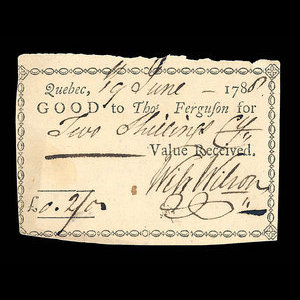 Quebec, 19 June — 1788
GOOD to Thos Ferguson for
Two Shillings Cy
Value Received.
Wilson
£0.2/0